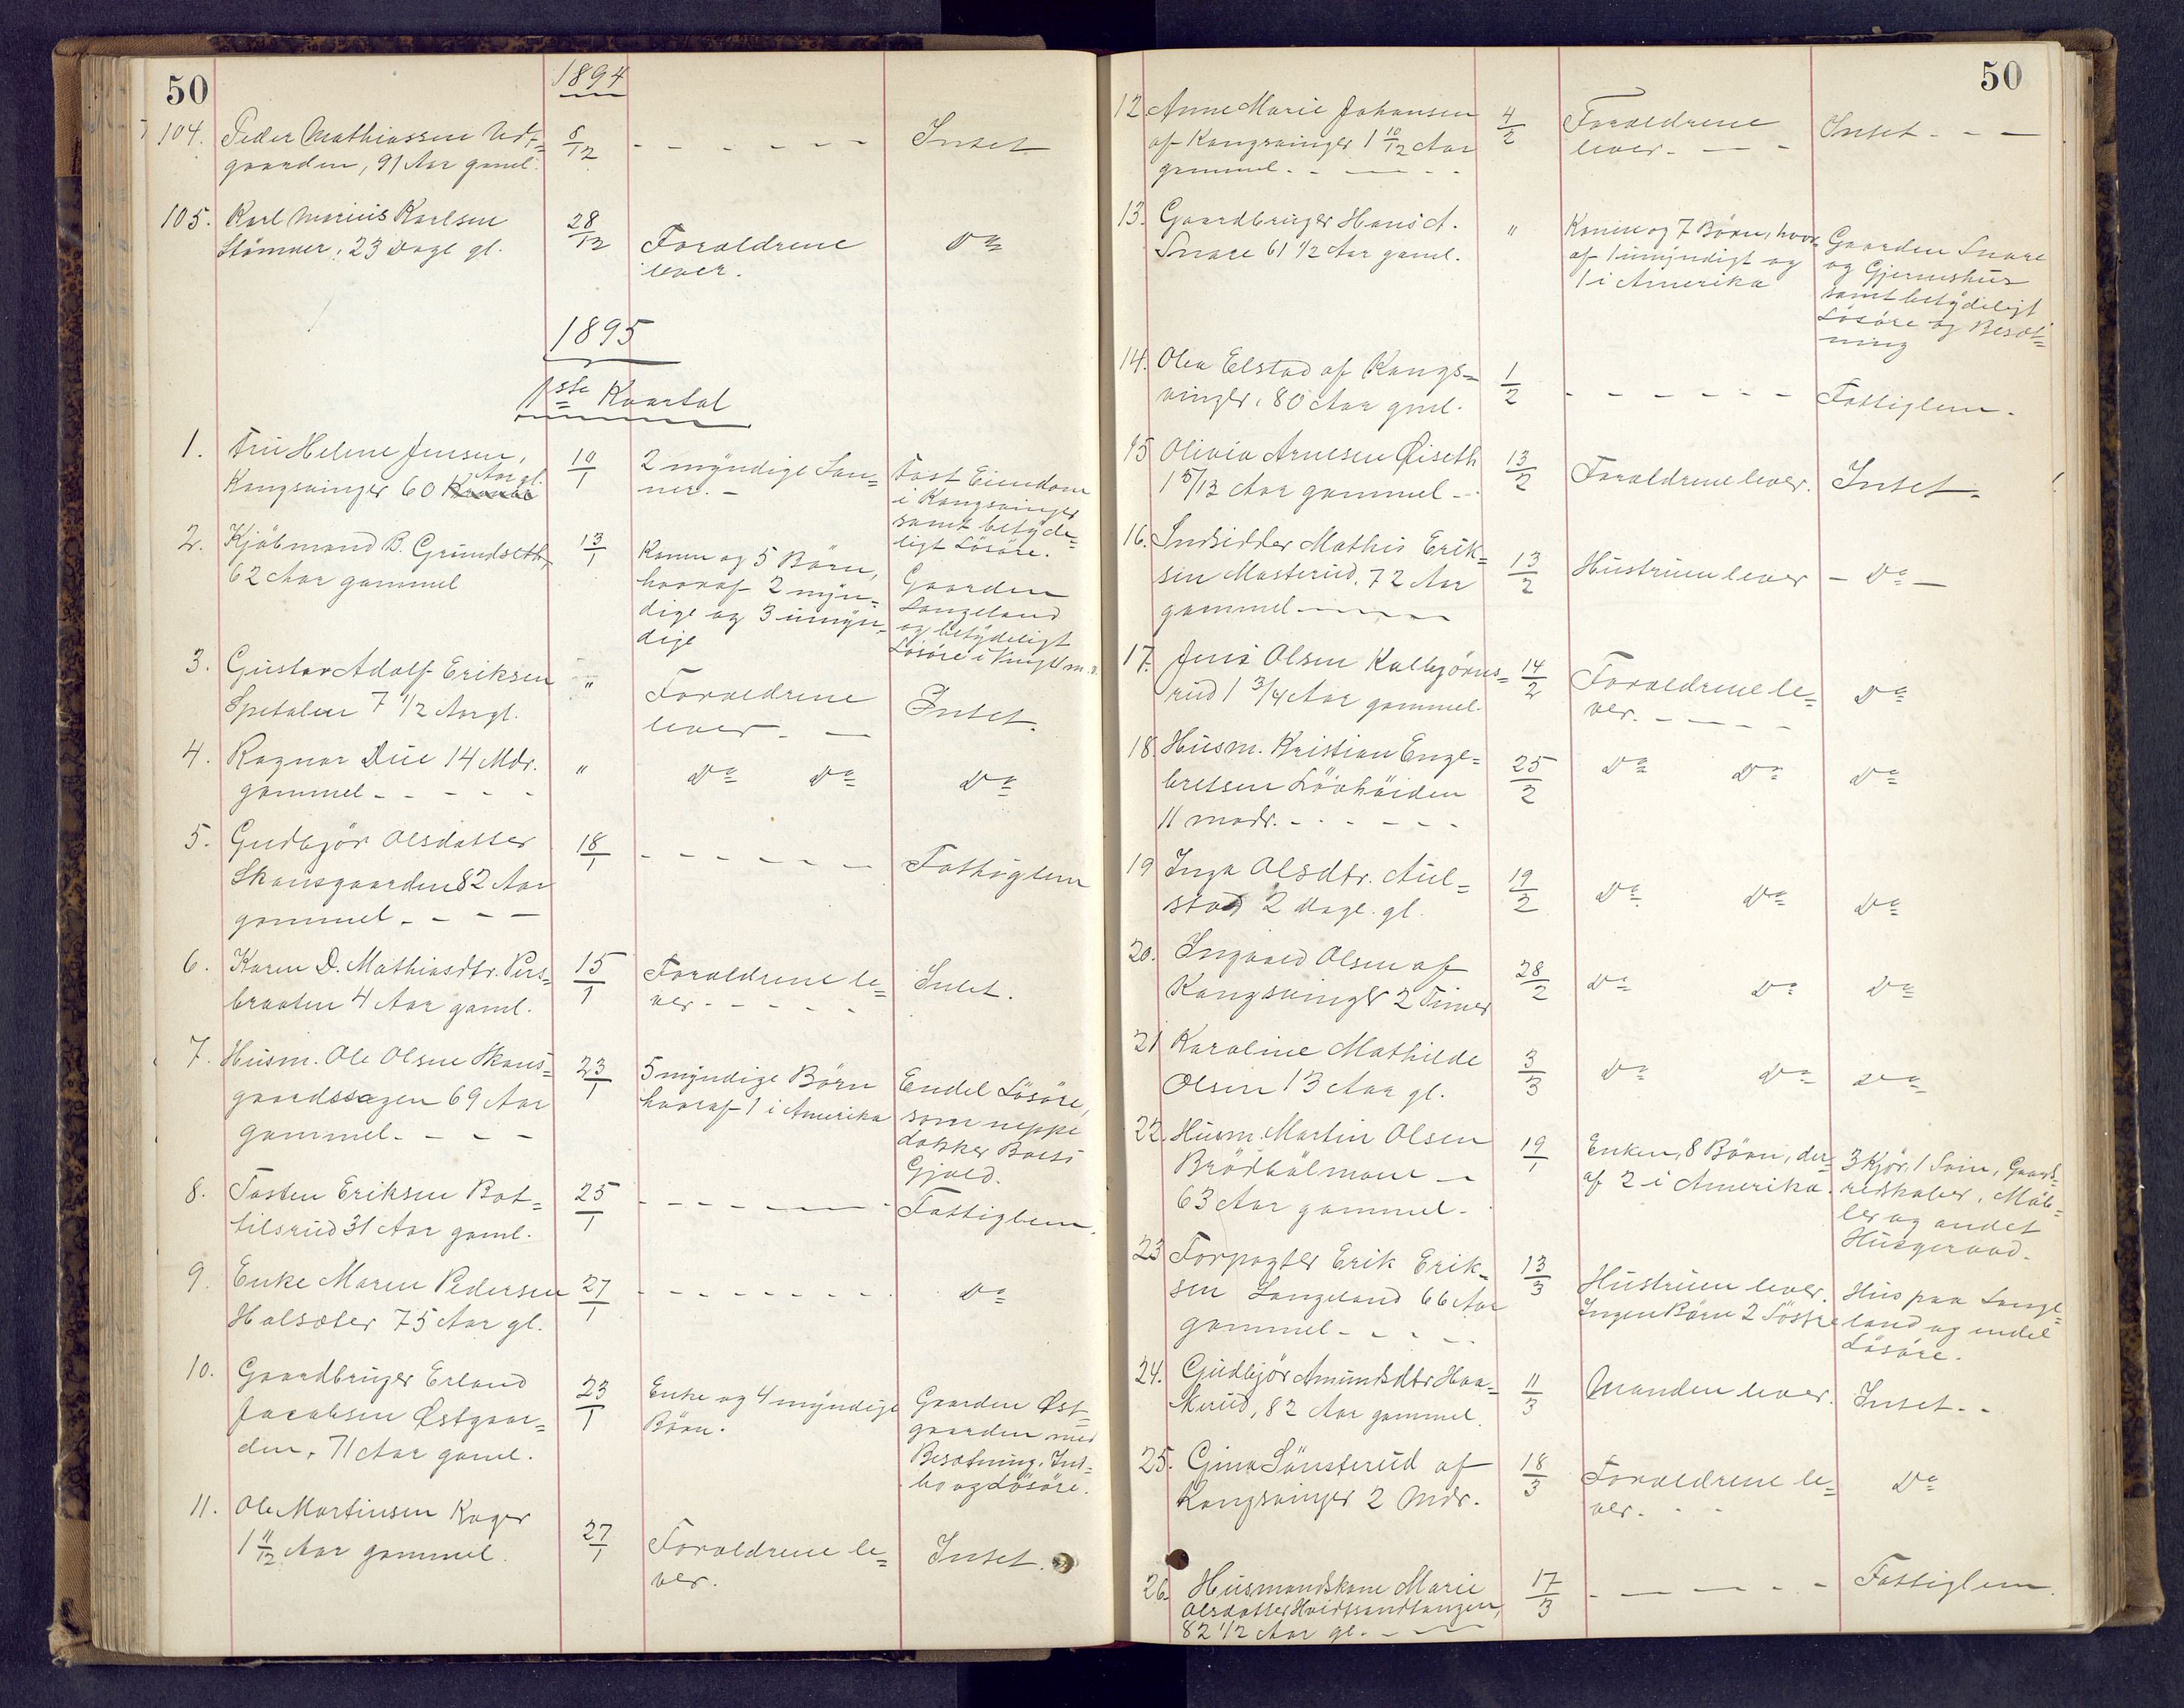 50
1894
104. Peder Mathiassen Vest=
gaarden, 91 Aar gaml.
8/12
- - - - - -
Intet
105. Karl Marius Karlsen
Strömner, 23 Dage gl.
28/12
Forældrene
lever.
Do
1895
1ste Kvartal
1. Fru Helene Jensen,
Kongsvinger 60 Aar gl.
10/1
2 myndige Søn=
ner. -
Fast Eiendom
i Kongsvinger
samt betyde=
ligt Lösöre.
2. Kjöbmand B. Grundseth,
62 Aar gammel
13/1
Konen og 5 Börn,
hvoraf 2 myn=
dige og 3 umyn=
dige
Gaarden
Langeland
og betydeligt
Lösöre i
3. Gustav Adolf Eriksen
Spetalen 7 1/2 Aar gl.
"
Forældrene
lever - -
Intet.
4. Ragnar Due 14 Mdr.
gammel - - - - -
"
Do Do
Do
5. Gudbjör Olsdatter
Skansgaarden 82 Aar
gammel - - - -
18/1
- - - - - -
Fattiglem
6. Karen D. Mathiasdtr. Pers=
braaten 4 Aar gaml.
15/1
Forældrene le=
ver - - - - -
Intet.
7. Husm. Ole Olsen Skans=
gaardssagen 69 Aar
gammel - - - -
23/1
5 myndige Börn
hvoraf 1 i Amerika
Endel Lösöre,
som neppe
dækker Boets
Gjæld.
8. Tosten Eriksen Bot=
tilsrud 31 Aar gaml.
25/1
- - - - - - -
Fattiglem.
9. Enke Maren Pedersen
Halsæter 75 Aar gl.
27/1
- - - - - - - -
Do
10. Gaardbruger Erland
Jacobsen Østgaar=
den, 71 Aar gaml.
23/1
Enke og 4 myndige
Börn.
Gaarden Øst=
gaarden med
Besætning, Ind=
bo og Lösöre.
11. Ole Martinsen Roger
1 11/12 Aar gammel.
27/1
Forældrene le=
ver.
Intet.
50
12. Anne Marie Johansen
af Kongsvinger 1 10/12 Aar
gammel - - - - -
4/2
Forældrene
lever - - -
Intet - - -
13. Gaardbruger Hans A.
Snare 61 1/2 Aar gaml.
"
Konen og 7 Börn, hvor=
af 1 umyndigt og
1 i Amerika
Gaarden Snare
og Gjemshus
samt betydeligt
Lösöre og Besæt=
ning
14. Olea Elstad af Kongs=
vinger, 80 Aar gml.
1/2
- - - - - -
Fattiglem.
15 Olivia Arnesen Øiseth
1 5/12 Aar gammel - -
13/2
Forældrene lever.
Intet -
16. Indsidder Mathis Erik=
sen Masterud, 72 Aar
gammel - - - -
13/2
Hustruen lever
- Do -
17. Jens Olsen Kulbjörns=
rud 1 3/4 Aar gammel.
14/2
Forældrene le=
ver. - - - -
Do
18. Husm. Kristian Enge=
bretsen Lövhöiden
11 mndr. - - - - - -
25/2
Do Do
Do
19 Inga Olsdtr. Aul=
stad 2 Dage. gl.
19/2
Do Do
Do
20. Ingvald Olsen af
Kongsvinger 2 Timer
28/2
Do Do
Do
21 Karoline Mathilde
Olsen 13 Aar gl.
3/3
Do Do
Do
22. Husm. Martin Olsen
Brödbölmoen -
63 Aar gammel -
19/1
Enken, 8 Börn, der=
af 2 i Amerika.
3 Kjör, 1 Svin, Gaards=
redskaber, Möb=
ler og andet
Husgeraad.
23 Forpagter Erik Erik=
sen Langeland 66 Aar
gammel - - - -
13/3
Hustruen lever.
Ingen Börn 2 Söstre
Hus paa Lange=
land og endel
Lösöre.
24. Gudbjör Amundsdtr Haa=
kerud, 82 Aar gammel.
11/3
Manden lever.
Intet - -
25. Gina Sönsterud af
Kongsvinger 2 Mdr.
18/3
Forældrene le=
ver. - -
Do
26. Husmandskone Marie
Olsdatter Hvidtsandtangen,
82 1/2 Aar gl. - - -
17/3
- - - - - -
Fattiglem.